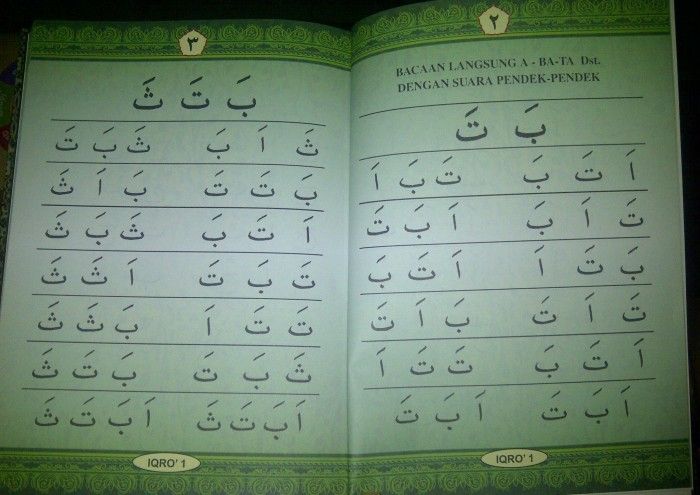 ٢
BACAAN LANGSUNG A - BA-TA Dst.
DENGAN SUARA PENDEK-PENDEK
بَ تَ
اَ تَ بَ تَ بَ اَ
تَ اَ بَ اَ بَ تَ
بَ تَ اَ اَ تَ بَ
تَ اَ تَ بَ اَ تَ
اَ تَ بَ تَ تَ اَ
اَ بَ تَ اَ بَ تَ
IQRO' 1
٣
بَ تَ ثَ
ثَ اَ بَ ثَ بَ تَ
بَ تَ تَ بَ اَ ثَ
اَ تَ بَ ثَ بَ ثَ
تَ بَ تَ اَ ثَ ثَ
تَ تَ اَ بَ ثَ ثَ
ثَ بَ تَ بَ تَ ثَ
اَ بَ تَ ثَ اَ بَ تَ ثَ
IQRO' 1